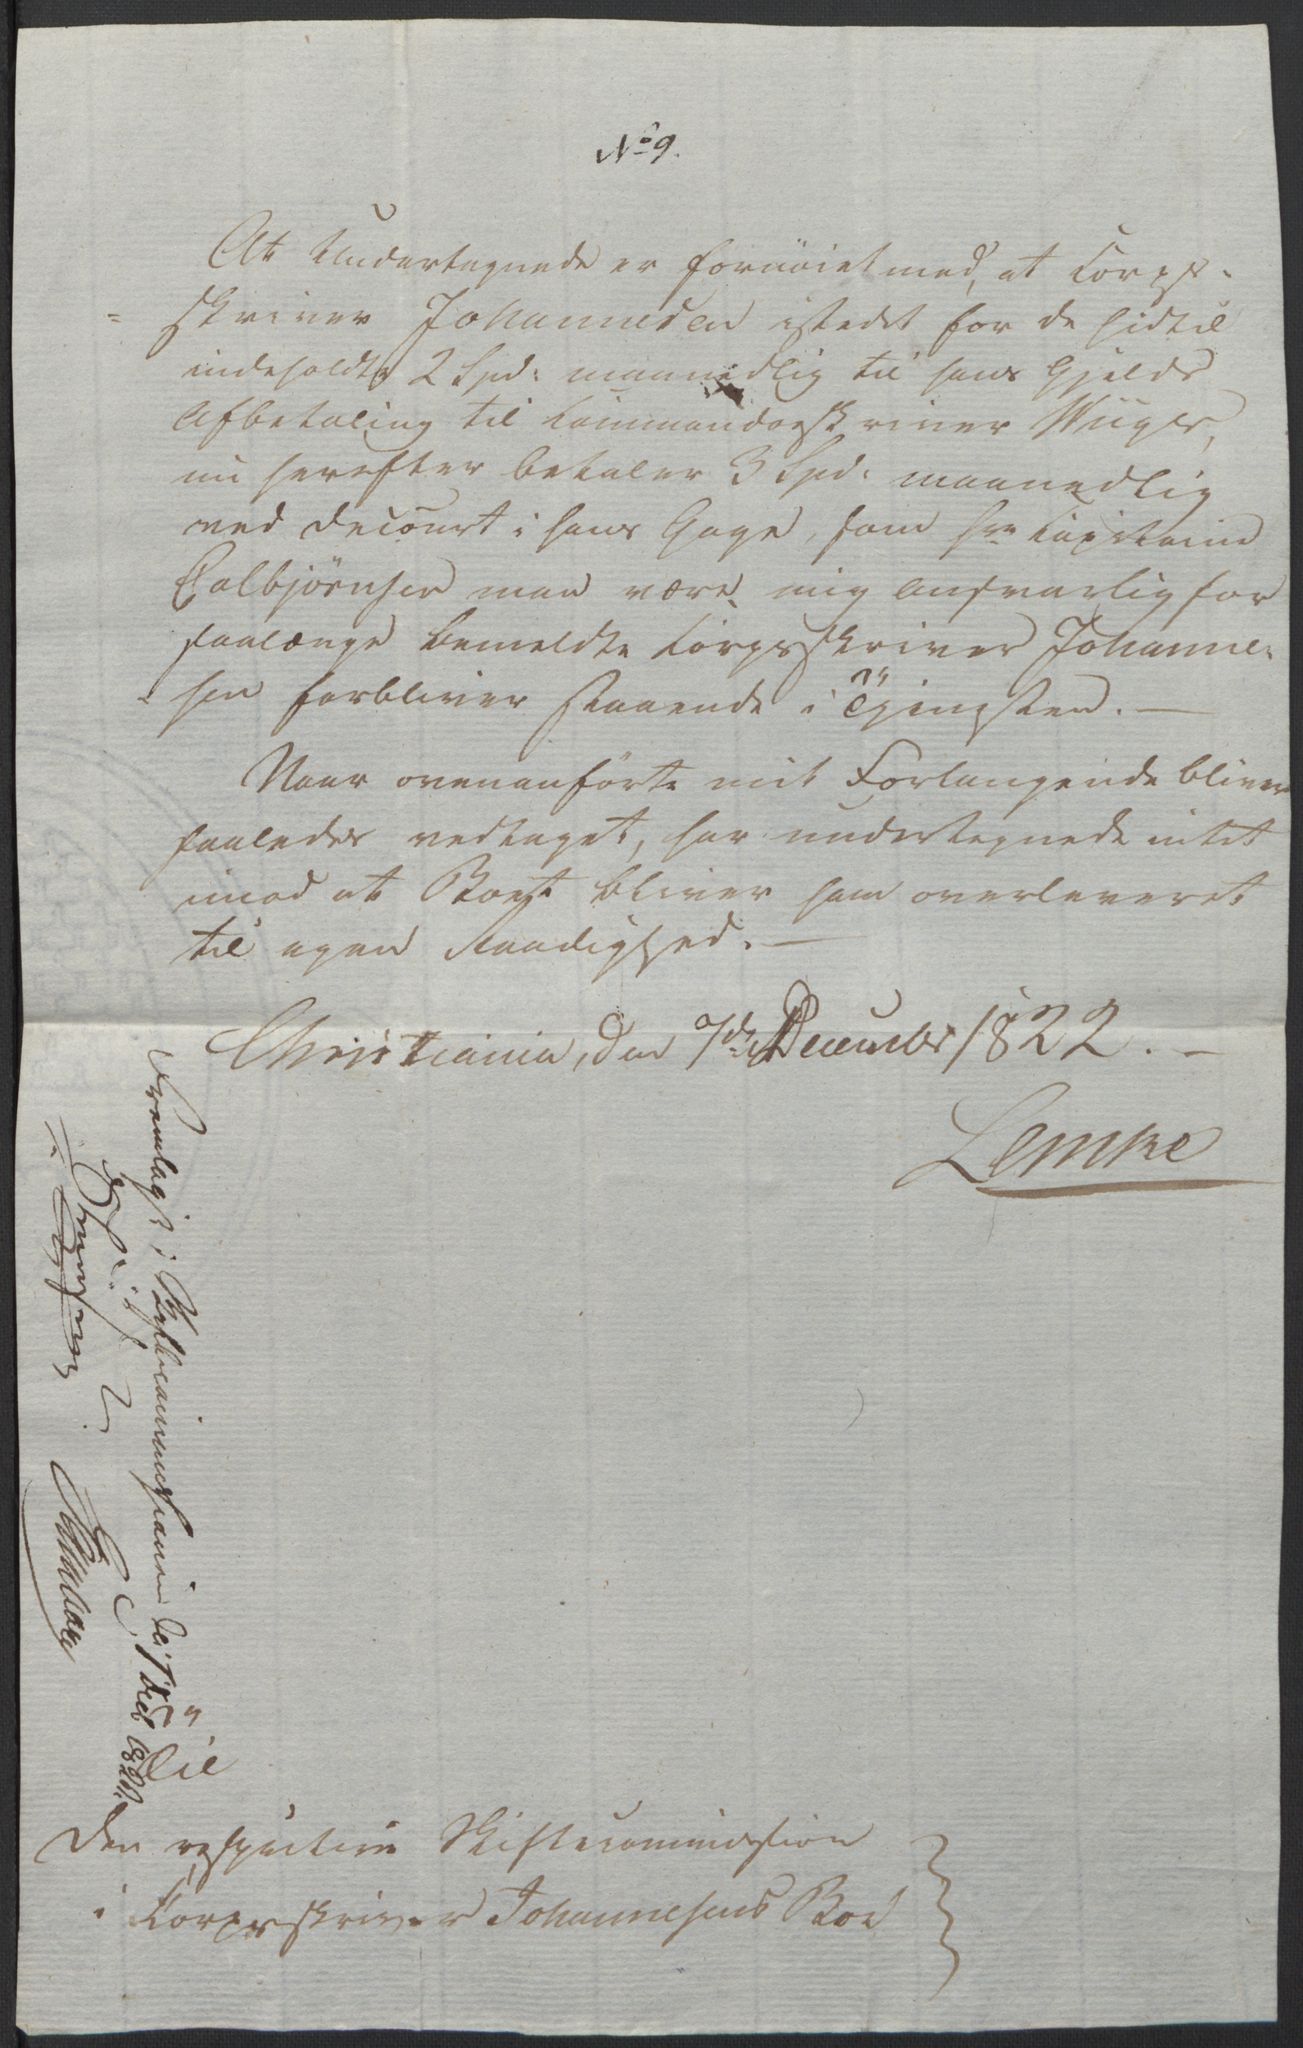 No 9.
At Undertegnede er fornöiet med, at Corps-
skriver Johannesen istedet for de hidtil
indeholdte 2 Spd: maanedlig til hans Gjelds
Afbetaling til Commandoeskriver Wiiger,
nu herefter betaler 3 Spd: maanedlig
ved Decourt i hans Gage, som Hr Capitaine
Colbjörnsen maa være mig ansvarlig for
saalænge bemeldte Corpsskriver Johanne-
sen forbliver staaende i Tjenesten. —
Naar ovenanförte mit Forlangende bliver
saaledes vedtaget, har undertegnede intet
imod at Boet bliver ham overleveret
til egen Raadighed. —
Christiania, den 7de December 1822. —
Lemke
Fremlagt i Skiftecommissionen de 7 Decb 1822.
Til
Den respective Skiftecommission
i Corpsskriver Johannesens Boe